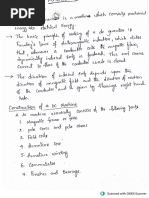 is a machine which converts mechanical
energy into electrical energy.
→ The basic principle of working of a dc generator is
Faraday's law of electromagnetic induction which states
that whenever a conductor cuts the magnetic flux,
dynamically induced emf is produced. This emf causes
current to flow if the conductor circuit is closed.
→ The direction of induced emf depends upon the
direction of magnetic field and the direction of
of the conductor
Construction of a DC Machine
A DC machine essentially consists of the following parts
1. Magnetic frame or yoke
2. pole cores and pole shoes
3. Field coils
4. Armature core
5. Armature winding
6. Commutator
7. Brushes and Bearings.
Scanned with OKEN Scanner